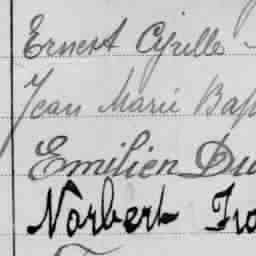 Ernest Cyrille
Jean Marie Bap
Emilien Du
Norbert Fra